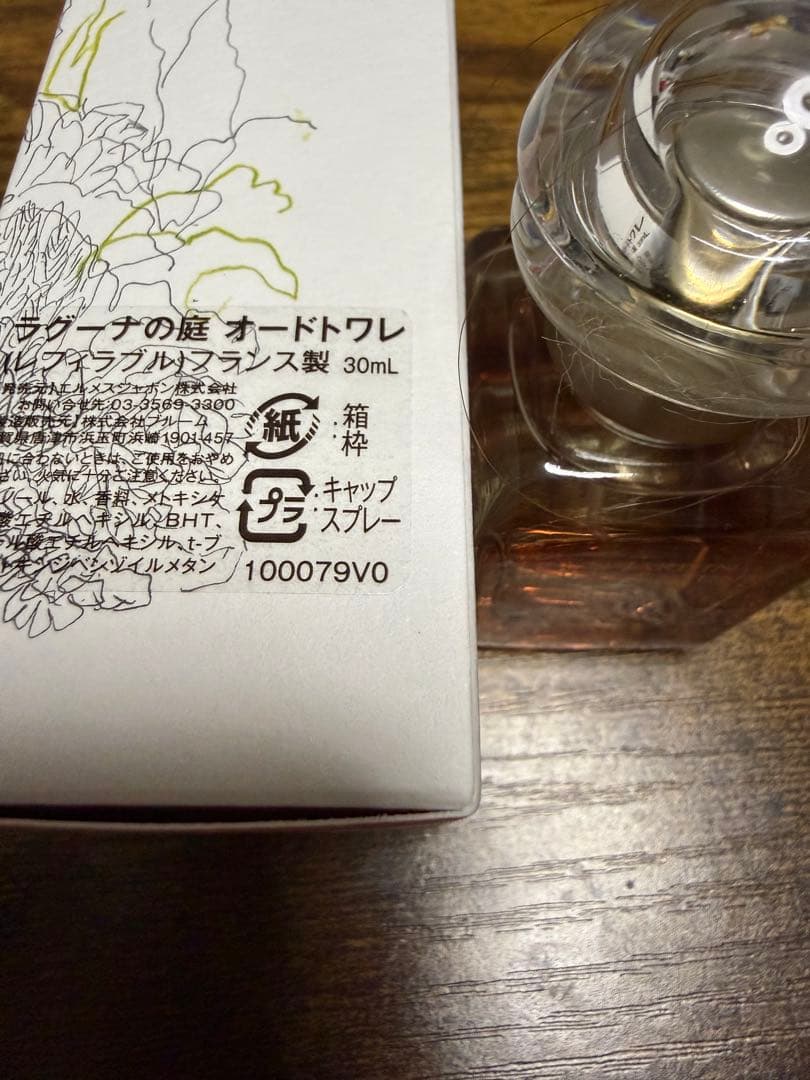 ラグーナの庭 オードトワレ
(レフィラブル)フランス製 30mL
発売元】エルメスジャポン株式会社
お問い合せ先:03-3569-3300
製造販売元】株式会社ブルーム
賀県唐津市浜玉町浜崎1901-457
に合わないときは、ご使用をおやめ
さい。火気に十分ご注意ください。
ノール、水、香料、メトキシケ
酸エチルヘキシル、BHT、
ル酸エチルヘキシル、t-ブ
トキシジベンゾイルメタン
紙
:箱
枠
プラ
:キャップ
スプレー
100079V0